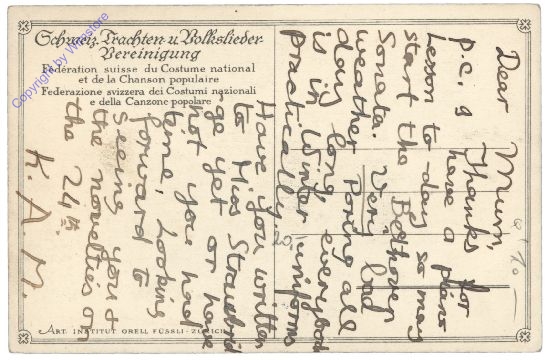 Schweiz. Trachten- u. Volkslieder-
Vereinigung
Fédération suisse du Costume national
et de la Chanson populaire
Federazione svizzera dei Costumi nazionali
e della Canzone popolare
Dear Mum
Thanks for
p.c. g have a piano
lesson to-day so may
start the Beethoven
Sonata. Very bad
weather Poring all
day long everybody
is in Winter uniforms
practically.
Have you written
to Miss
ge yet or have
not you had
time. Looking
forward to
seeing you &
the novelties on
the 24th.
K. A. M.
20,-
ART. INSTITUT ORELL FÜSSLI - ZÜRICH
Copyright by